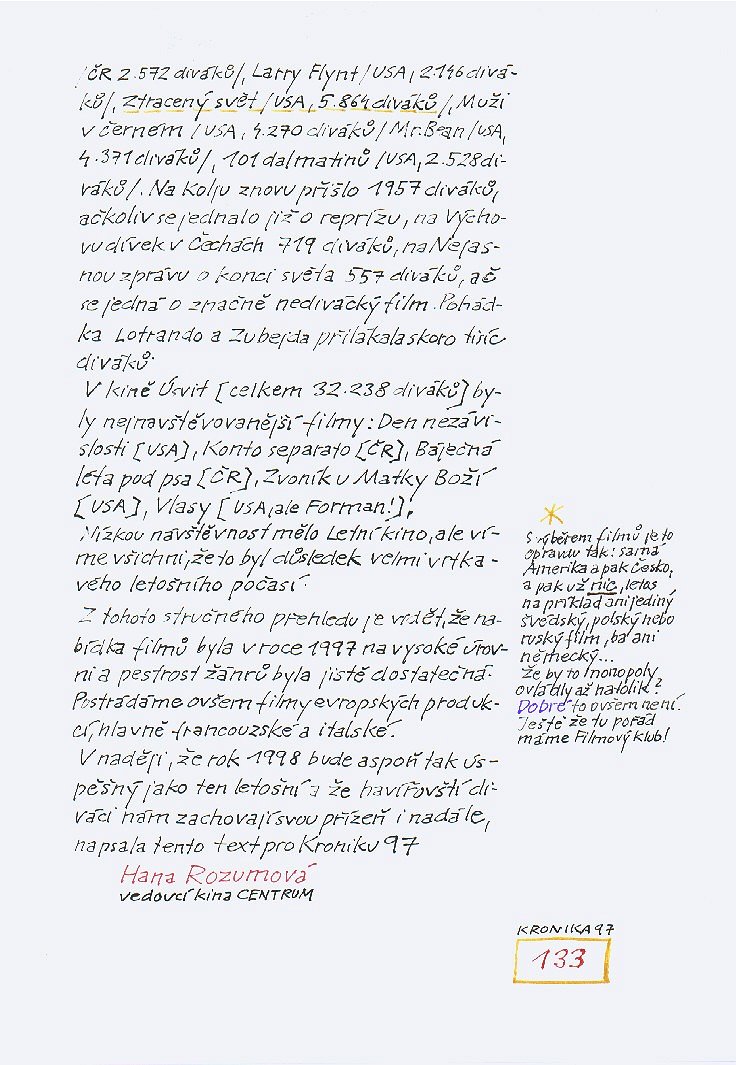 /ČR 2.572 diváků/, Larry Flynt /USA, 2.146 divá-
ků/, Ztracený svět /USA, 5.864 diváků/, Muži
v černém /USA, 4.270 diváků/ Mr. Bean /USA,
4.371 diváků/, 101 dalmatinů /USA, 2.528 di-
váků/. Na Kolju znovu přišlo 1957 diváků,
ačkoliv se jednalo již o reprízu, na Výcho-
vu dívek v Čechách 719 diváků, na Nejas-
nou zprávu o konci světa 557 diváků, ač
se jedná o značně nedivácký film. Pohád-
ka Lotrando a Zubejda přilákala skoro tisíc
diváků.
V kině Úsvit [celkem 32.238 diváků] by-
ly nejnavštěvovanější filmy: Den nezávi-
slosti [USA], Konto separato [ČR], Báječná
léta pod psa [ČR], Zvoník u Matky Boží
[USA], Vlasy [USA, ale Forman!].
Nízkou návštěvnost mělo Letní kino, ale ví-
me všichni, že to byl důsledek velmi vrtka-
vého letošního počasí.
Z tohoto stručného přehledu je vidět, že na-
bídka filmů byla v roce 1997 na vysoké úrov-
ni a pestrost žánrů byla jistě dostatečná.
Postrádáme ovšem filmy evropských produk-
cí, hlavně francouzské a italské.
V naději, že rok 1998 bude aspoň tak ús-
pěšný jako ten letošní a že havířovští di-
váci nám zachovají svou přízeň i nadále,
napsala tento text pro Kroniku 97
Hana Rozumová
vedoucí kina CENTRUM
S výběrem filmů je to
opravdu tak: samá
Amerika a pak Česko,
a pak už nic, letos
na příklad ani jediný
švédský, polský nebo
ruský film, ba ani
německý...
Že by to monopoly
ovládly až natolik?
Dobré to ovšem není.
Ještě že tu pořád
máme Filmový klub!
KRONIKA 97
133